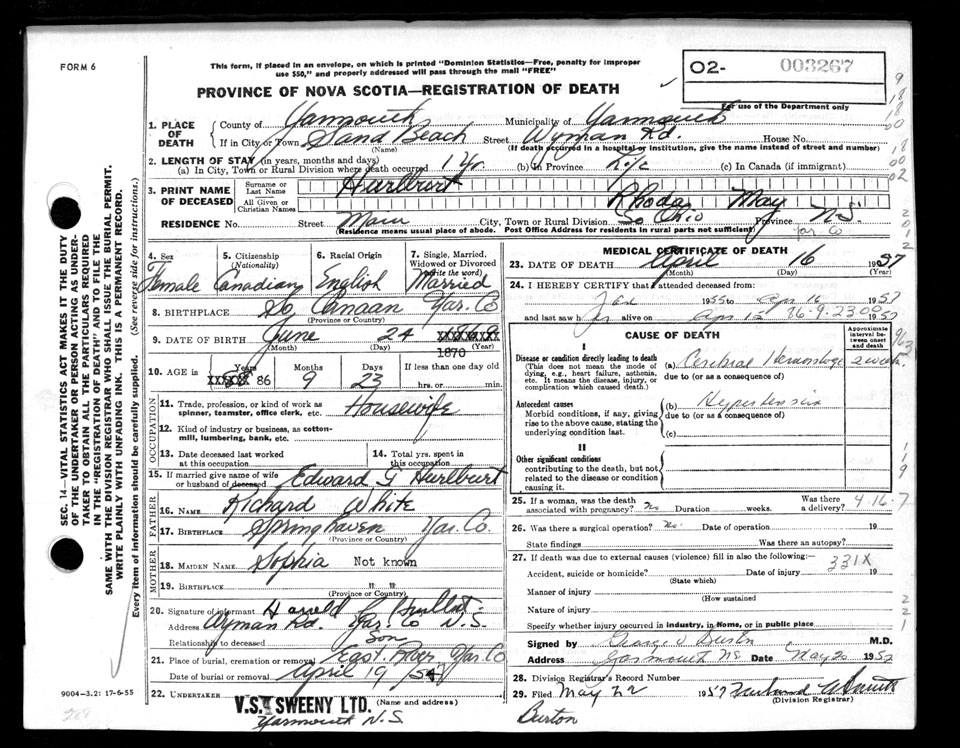 FORM 6
This form, if placed in an envelope, on which is printed "Dominion Statistics—Free, penalty for improper
use $50," and properly addressed will pass through the mail "FREE"
O2- 003267
For use of the Department only
PROVINCE OF NOVA SCOTIA—REGISTRATION OF DEATH
1. PLACE OF DEATH
County of Yarmouth Municipality of Yarmouth
If in City or Town Sand Beach Street Wyman Rd. House No.
(Name) (If death occurred in a hospital or institution, give the name instead of street and number)
2. LENGTH OF STAY (in years, months and days)
(a) In City, Town or Rural Division where death occurred 1 yr. (b) In Province Life (c) In Canada (if immigrant)
3. PRINT NAME OF DECEASED
Surname or Last Name Hurlburt
All Given or Christian Names Rhoda May
RESIDENCE No. Street Main City, Town or Rural Division So Ohio Province N.S.
(Residence means usual place of abode. Post Office Address for residents in rural parts not sufficient) Yar Co
4. Sex Female
5. Citizenship (Nationality) Canadian
6. Racial Origin English
7. Single, Married, Widowed or Divorced (Write the word) Married
8. BIRTHPLACE So. Canaan Yar. Co
(Province or Country)
9. DATE OF BIRTH June 24 1870
(Month) (Day) (Year)
10. AGE in Years 86 Months 9 Days 23 If less than one day old hrs. or min.
OCCUPATION
11. Trade, profession, or kind of work as spinner, teamster, office clerk, etc. Housewife
12. Kind of industry or business, as cotton-mill, lumbering, bank, etc.
13. Date deceased last worked at this occupation
14. Total yrs. spent in this occupation
15. If married give name of wife or husband of deceased Edward G Hurlburt
FATHER
16. NAME Richard White
17. BIRTHPLACE Springhaven Yar. Co.
(Province or Country)
MOTHER
18. MAIDEN NAME Sophia Not known
19. BIRTHPLACE " "
(Province or Country)
20. Signature of informant Harold Hurlburt
Address Wyman Rd. Yar. Co N.S.
Relationship to deceased Son
21. Place of burial, cremation or removal East River Yar. Co
Date of burial or removal April 19/57
22. UNDERTAKER V.S. SWEENY LTD. (Name and address)
Yarmouth N.S.
9004-3.21 17-6-55
MEDICAL CERTIFICATE OF DEATH
23. DATE OF DEATH April 16 1957
(Month) (Day) (Year)
24. I HEREBY CERTIFY that I attended deceased from:
Jan 1955 to Apr 16 1957
and last saw her alive on Apr 15 1957
86-9-23 00
CAUSE OF DEATH
Approximate interval between onset and death
I
Disease or condition directly leading to death
(This does not mean the mode of dying, e.g., heart failure, asthenia, etc. It means the disease, injury, or complication which caused death.)
(a) Cerebral Hemorrhage 2 weeks
due to (or as a consequence of)
Antecedent causes
Morbid conditions, if any, giving rise to the above cause, stating the underlying condition last.
(b) Hypertension
due to (or as a consequence of)
(c)
II
Other significant conditions
contributing to the death, but not related to the disease or condition causing it.
25. If a woman, was the death associated with pregnancy? No Duration weeks. Was there a delivery?
4-16-7
26. Was there a surgical operation? No. Date of operation 19
State findings Was there an autopsy?
27. If death was due to external causes (violence) fill in also the following:—
Accident, suicide or homicide? Date of injury 19
331X
(State which)
Manner of injury
(How sustained
Nature of injury
Specify whether injury occurred in industry, in home, or in public place
Signed by George V Burton M.D.
Address Yarmouth NS Date May 20 1957
28. Division Registrar's Record Number
29. Filed May 22 1957
(Division Registrar)
Burton
SEC. 14—VITAL STATISTICS ACT MAKES IT THE DUTY
OF THE UNDERTAKER OR PERSON ACTING AS UNDER-
TAKER TO OBTAIN ALL THE PARTICULARS REQUIRED
IN THE "REGISTRATION OF DEATH" AND TO FILE THE
SAME WITH THE DIVISION REGISTRAR WHO SHALL ISSUE THE BURIAL PERMIT.
WRITE PLAINLY WITH UNFADING INK. THIS IS A PERMANENT RECORD.
Every item of information should be carefully supplied. (See reverse side for instructions.)